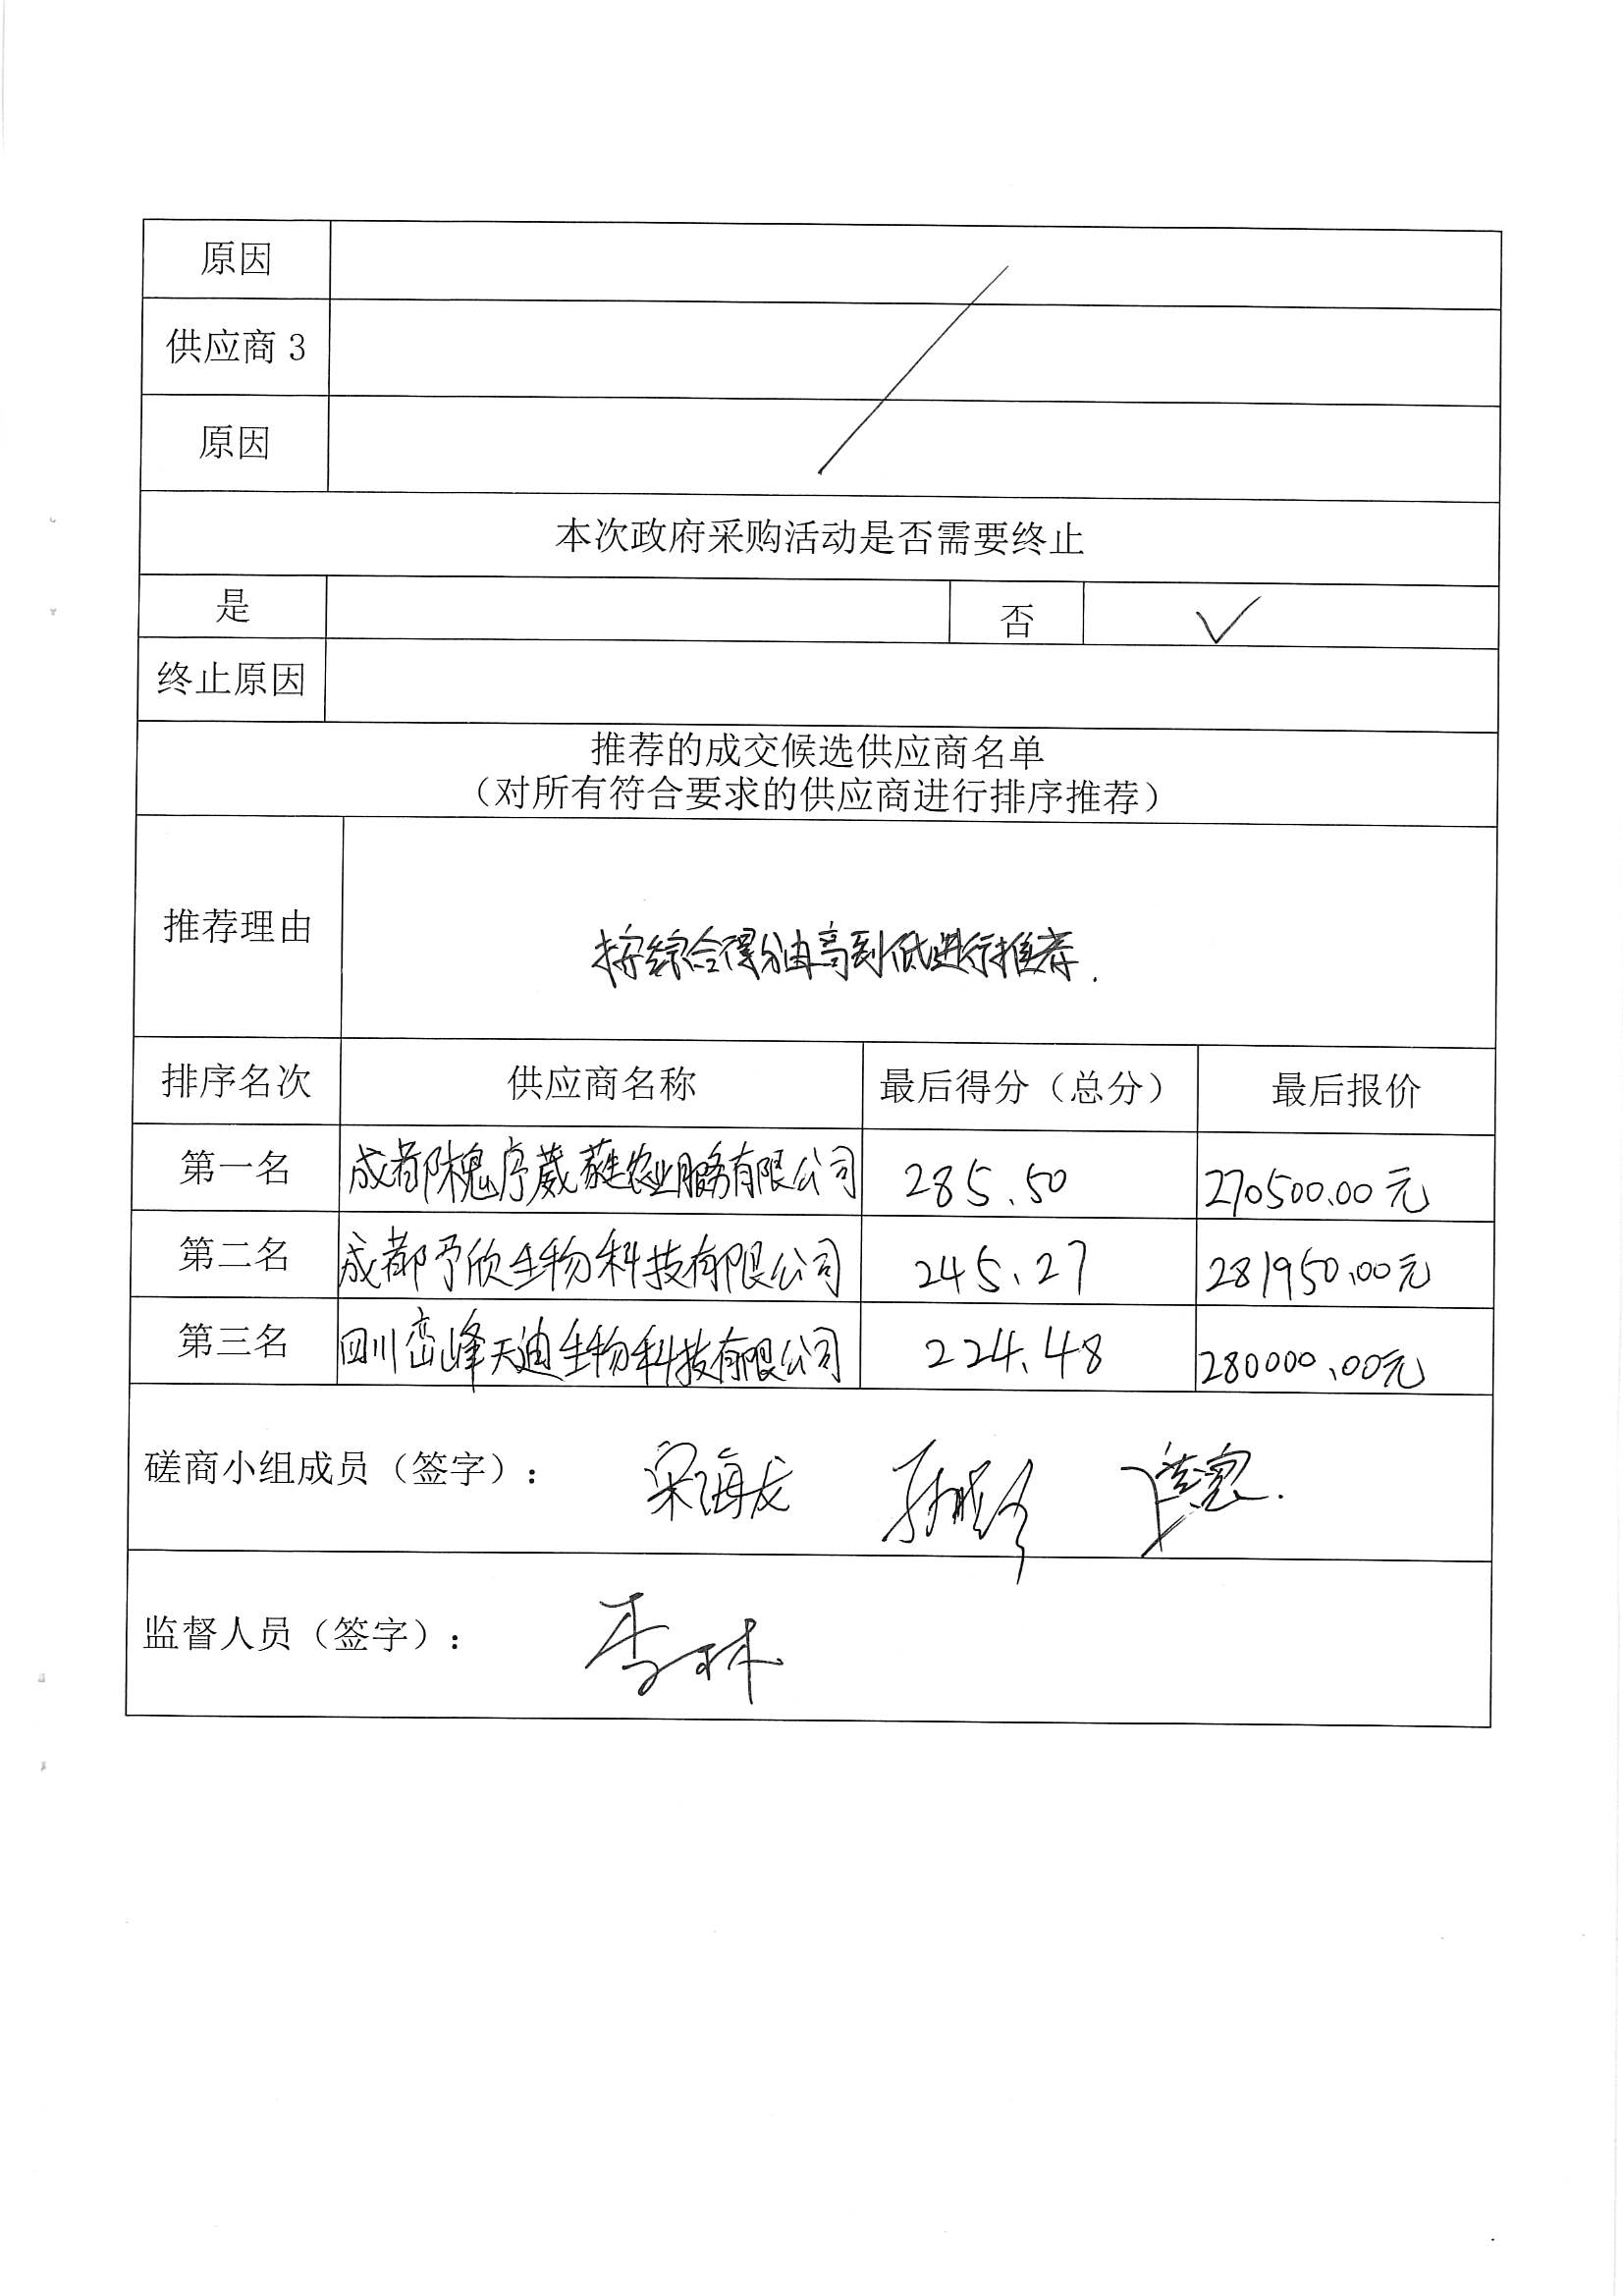 原因
供应商 3
原因
本次政府采购活动是否需要终止
是 否 ✓
终止原因
推荐的成交候选供应商名单
（对所有符合要求的供应商进行排序推荐）
推荐理由 按综合得分由高到低进行推荐.
排序名次 供应商名称 最后得分（总分） 最后报价
第一名 成都槐序葳蕤农业服务有限公司 285.50 270500.00元
第二名 成都予欣生物科技有限公司 245.27 281950.00元
第三名 四川峦峰天迪生物科技有限公司 224.48 280000.00元
磋商小组成员（签字）： 宋海龙
监督人员（签字）： 李林